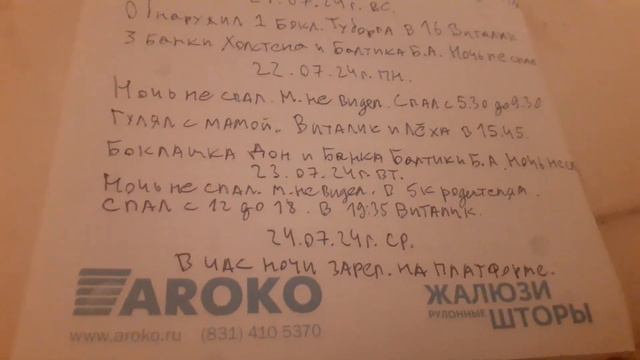 21.07.24г. ВС.
Обнаружил 1 Бокл. Туборга в 16 Виталик
3 Банки Холстена и Балтика Б.А. Ночь не спал
22.07.24г. ПН.
Ночь не спал. М. не видел. Спал с 5.30 до 9.30
Гулял с мамой. Виталик и Лёха в 15.45.
Боклашка Дон и Банка Балтики Б.А. Ночь не сп
23.07.24г. ВТ.
Ночь не спал. М. не видел. В 5 к родителям.
Спал с 12 до 18. В 19:35 Виталик.
24.07.24г. СР.
В час ночи на платформе.
AROKO
ЖАЛЮЗИ
РУЛОННЫЕ ШТОРЫ
www.aroko.ru (831) 410 5370